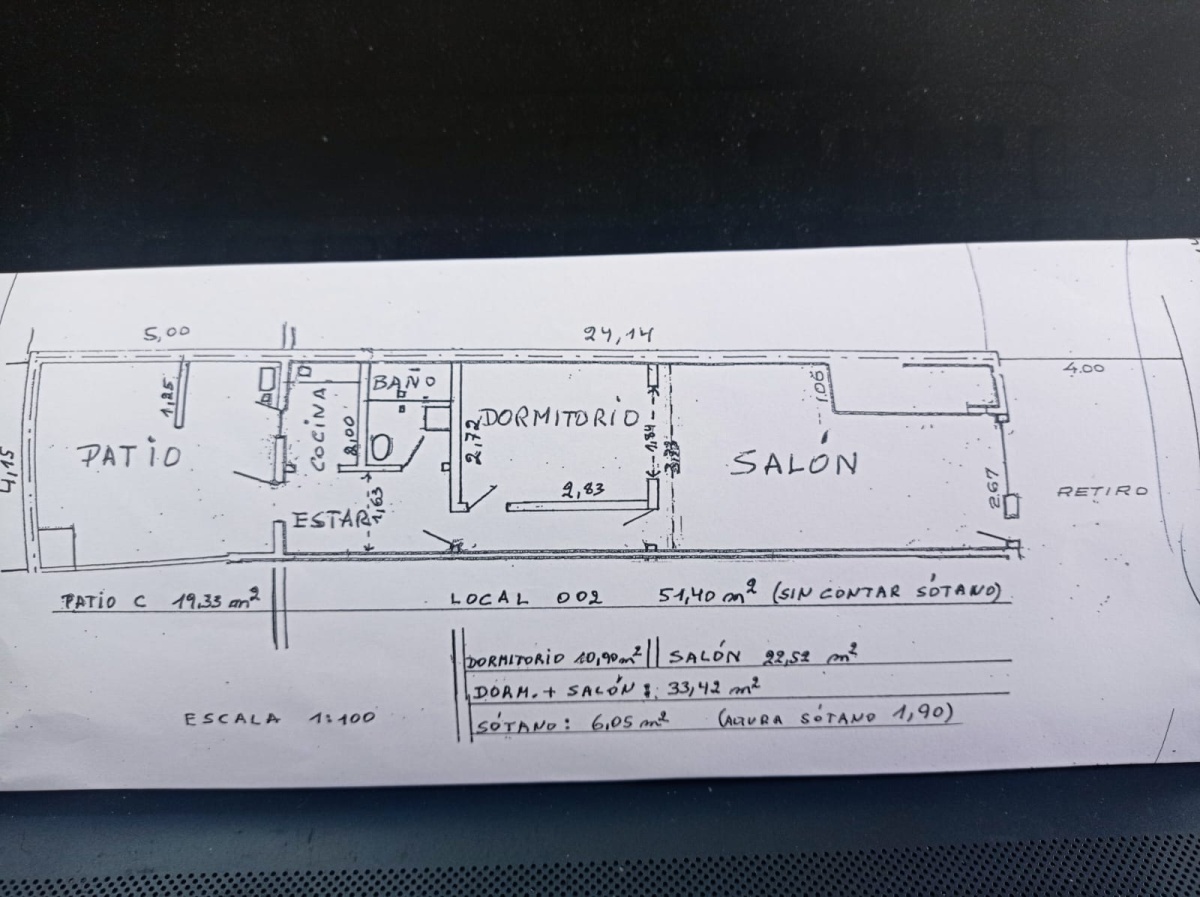 5,00
24,14
4.00
BAÑO
1,25
COCINA
2,00
2,72
DORMITORIO
1,84
1.06
4,15
PATIO
SALÓN
2.67
RETIRO
2,83
ESTAR
1,63
PATIO C 19,33 m²
LOCAL 002 51,40 m² (SIN CONTAR SÓTANO)
DORMITORIO 10,90 m² SALÓN 22,52 m²
DORM. + SALÓN: 33,42 m²
ESCALA 1:100
SÓTANO: 6,05 m² (ALTURA SÓTANO 1,90)